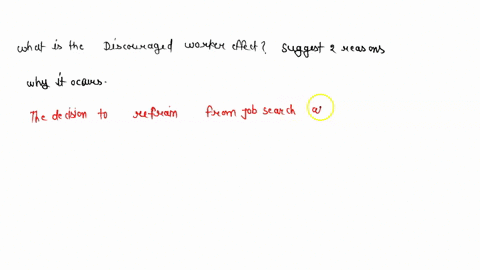 What is the Discouraged worker effect? Suggest 2 reasons
why it occurs.
The decision to refrain from job search